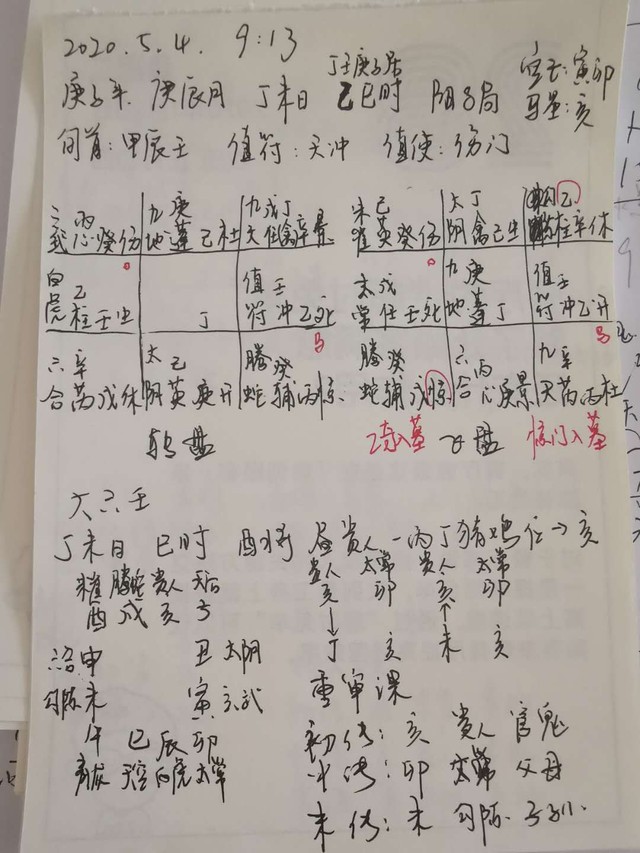 2020.5.4. 9:13
丁壬庚子居
庚子年 庚辰月 丁未日 乙巳时 阴8局 空亡:寅卯
马星:亥
旬首:甲辰壬 值符:天冲 值使:伤门
玄丙 九庚 九戊丁 朱己 太丁 乙
武心癸伤 地蓬己杜 天任禽辛景 雀英癸伤 阴禽己生 柱辛休
白乙 值壬 太戊 九庚 值壬
虎柱壬生 丁 符冲乙死 常任壬死 地蓬丁 符冲乙开
马 马
六辛 太己 腾癸 腾癸 六丙 九辛
合芮戊休 阴英庚开 蛇辅丙惊 蛇辅戊惊 合心庚景 天芮丙杜
转盘 乙奇入墓 飞盘 惊门入墓
大六壬
丁未日 巳时 酉将 昼贵人-丙丁猪鸡位→亥
朱雀 腾蛇 贵人 天后 贵人 太常 贵人 太常
酉 戌 亥 子 亥 卯 亥 卯
申 丑 太阴 丁 亥 未 亥
勾陈 未 寅 玄武 重审课
午 巳 辰 卯 初传:亥 贵人 官鬼
青龙 天空 白虎 太常 中传:卯 太常 父母
末传:未 勾陈 子孙